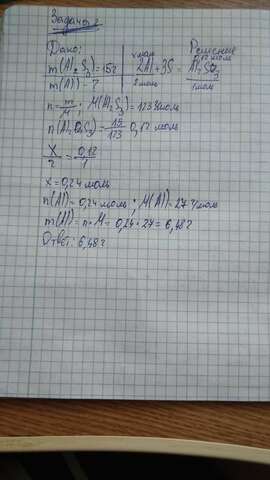 Задача 2
Дано: Решение
m(Al₂S₃)=15г x моль 0,12 моль
2Al + 3S = Al₂S₃
m(Al) - ? 2 моль 1 моль
n=m/M; M(Al₂S₃)=123 г/моль
n(Al₂S₃)=15/123 0,12 моль
x/2 = 0,12/1
x=0,24 моль
n(Al)=0,24 моль; M(Al)=27 г/моль
m(Al)=n·M=0,24·27=6,48г
Ответ: 6,48г